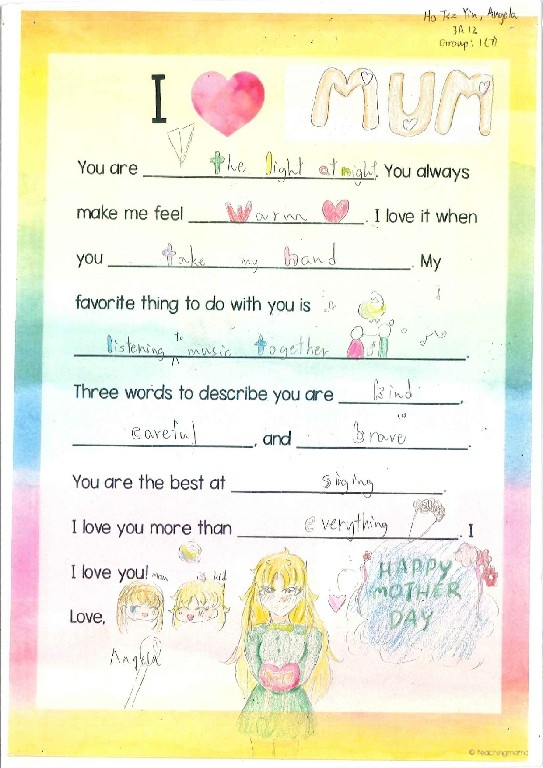 Ho Tsz Yin, Angela
3A 12
Group: 1(7)
I MUM
You are the light at night. You always
make me feel warm. I love it when
you take my hand. My
favorite thing to do with you is
listening to music together.
Three words to describe you are kind,
careful, and brave.
You are the best at siging.
I love you more than everything. I
I love you! Mum is kid
Love,
Angela
HAPPY
MOTHER
DAY
© teachingmama